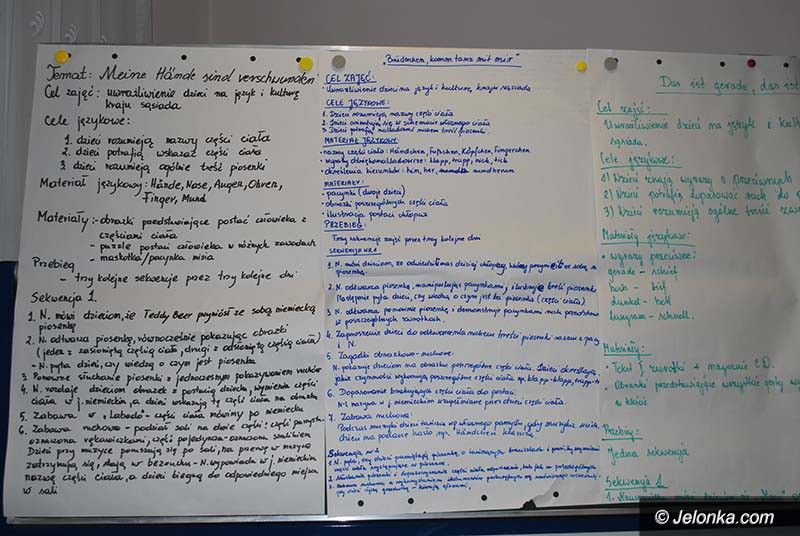 Temat: Meine Hände sind verschwunden
Cel zajęć: uwrażliwienie dzieci na język i kulturę
kraju sąsiada
Cele językowe:
1. dzieci rozumieją nazwy części ciała
2. dzieci potrafią wskazać części ciała
3. dzieci rozumieją ogólnie treść piosenki
Materiał językowy: Hände, Nase, Augen, Ohren,
Finger, Mund
Materiały: - obrazki przedstawiające postać człowieka z
częściami ciała
- puzzle postaci człowieka w różnych zawodach
- maskotka/pacynka misia
Przebieg
- trzy kolejne sekwencje przez trzy kolejne dni
Sekwencja 1.
1. N. mówi dzieciom, że Teddy Beer przyniósł ze sobą niemiecką
piosenkę
2. N. odtwarza piosenkę, równocześnie pokazując obrazki
(jeden z zasłoniętą częścią ciała, drugi z odsłoniętą częścią ciała)
- N. pyta dzieci, czy wiedzą o czym jest piosenka
3. Ponowne słuchanie piosenki z jednoczesnym pokazywaniem ruchów
4. N. rozdaje dzieciom obrazek z postacią dziecka, wymienia części
ciała w j. niemieckim, a dzieci wskazują tę część ciała na obrazku
5. Zabawa w "Labado" - części ciała mówimy po niemiecku
6. Zabawa ruchowa - podział sali na dwie części: części parzyste
oznaczona rękawiczkami, części pojedyncze - oznaczona szalikiem
Dzieci przy muzyce poruszają się po sali, na przerwę w muzyce
zatrzymują się, stają w bezruchu - N. wypowiada w j. niemieckim
nazwę części ciała, a dzieci biegną do odpowiedniego miejsca
w sali
"Brüderchen, komm tanz mit mir"
CEL ZAJĘĆ:
Uwrażliwienie dzieci na język i kulturę kraju sąsiada
CELE JĘZYKOWE:
1. Dzieci rozumieją nazwy części ciała
2. Dzieci orientują się w schemacie własnego ciała
3. Dzieci potrafią naśladować ruchem treść piosenki
MATERIAŁ JĘZYKOWY
- nazwy części ciała: Händchen, Füßchen, Köpfchen, Fingerchen
- wyrazy dźwiękonaśladowcze: klapp, trapp, nick, tick
- określenia kierunku: hin, her, rundherum
MATERIAŁY:
- pacynki (dwoje dzieci)
- obrazki poszczególnych części ciała
- ilustracja postaci chłopca
PRZEBIEG:
Trzy sekwencje zajęć przez trzy kolejne dni
SEKWENCJA NR 1
1. N. mówi dzieciom, że odwiedził nas dzisiaj chłopiec, który przyniósł ze sobą
piosenkę.
2. N. odtwarza piosenkę, manipulując pacynkami, ilustruje treść piosenki
Następnie pyta dzieci, czy wiedzą o czym jest ta piosenka (części ciała)
3. N. odtwarza ponownie piosenkę i demonstruje pacynkami ruch przedstawiony
w poszczególnych zwrotkach.
4. Zaproszenie dzieci do odtwarzania ruchem treści piosenki razem z pacynkami
i N.
5. Zagadki obrazkowo-ruchowe:
N. pokazuje dzieciom na obrazku poszczególne części ciała. Dzieci określają,
jakie czynności wykonują poszczególne części ciała np. klapp-klapp, trapp
6. Dopasowanie brakujących części ciała do postaci.
N. nazywa w j. niemieckim uzupełniane przez dzieci części ciała.
7. Zabawa ruchowa:
Podczas muzyki dzieci tańczą wg własnego pomysłu, gdy muzyka ucichnie,
dzieci na podane hasło np. Händchen klaszczą.
Sekwencja nr 2
Das ist gerade, das ist
Cel zajęć:
Uwrażliwienie dzieci na język i kul
sąsiada.
Cele językowe:
1) Dzieci znają wyrazy o przeciwnych
2) Dzieci potrafią dopasować ruch do
3) Dzieci rozumieją ogólne treści
Materiały językowe:
- wyrazy przeciwne:
gerade - schief
hoch - tief
dunkel - hell
langsam - schnell.
Materiały:
- Tekst nagranie CD.
- Obrazki przedstawiające wszystkie
w tekście
Przebieg:
Jedna sekwencja
Sekwencja 1
© Jelonka.com